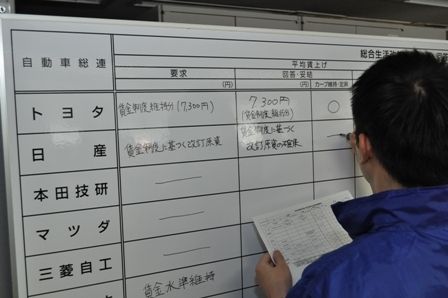 総合生活
自動車総連
平均賃上げ
要求
(円)
回答・妥結
(円)
カーブ維持・定昇
トヨタ
賃金制度維持分(7,300円)
7,300円
(賃金制度維持分)
○
日産
賃金制度に基づく改訂原資
賃金制度に基づく
改訂原資の確保
本田技研
マツダ
三菱自工
賃金水準維持